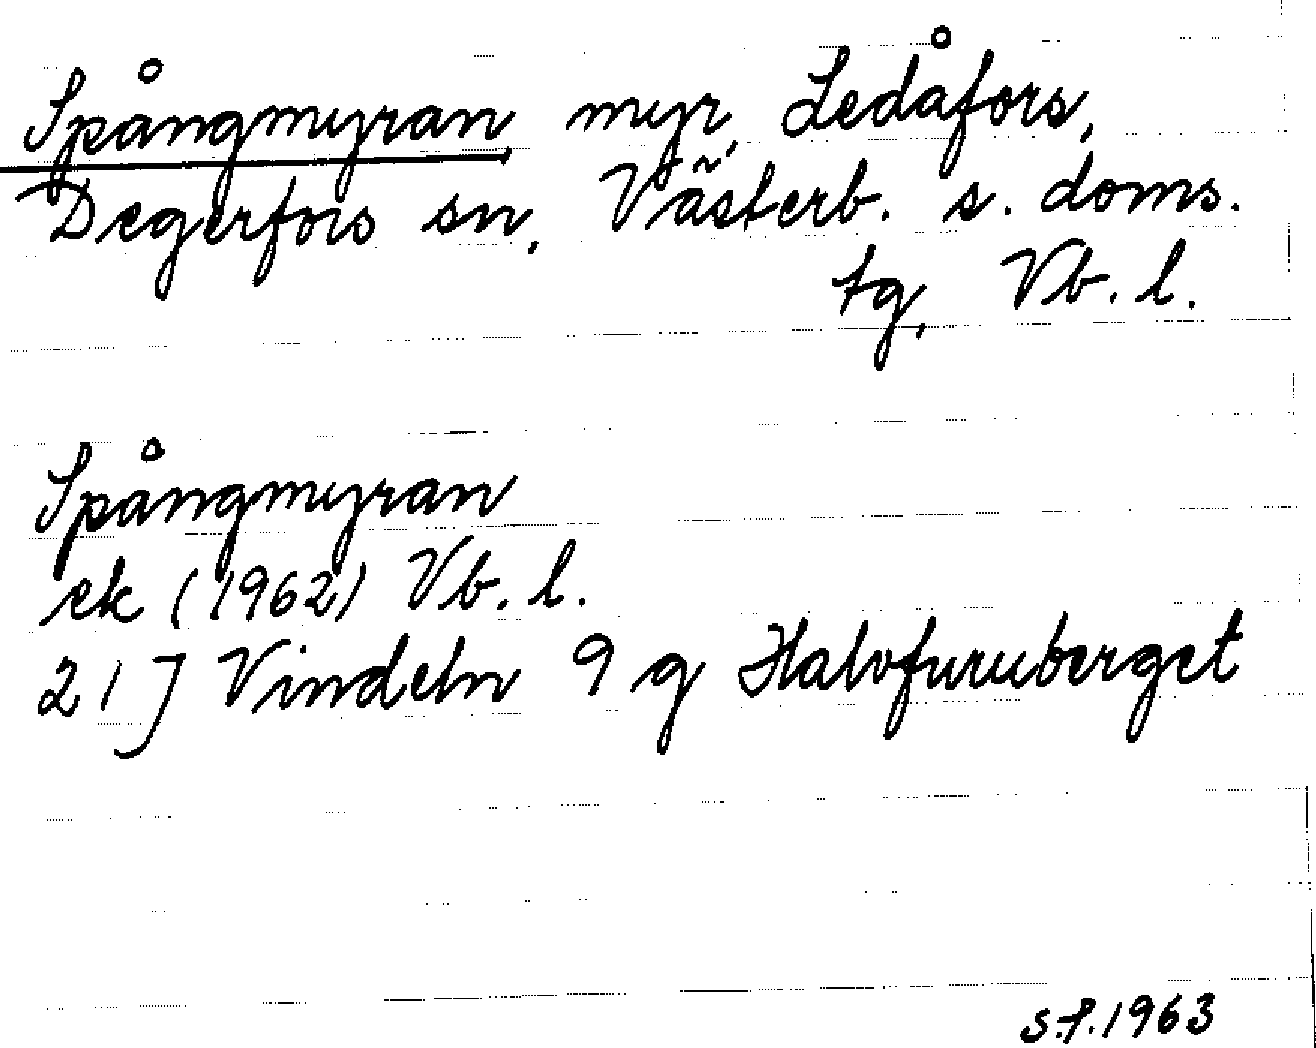 Spångmyran, myr, Ledåfors,
Degerfors sn, Västerb. s. doms.
tg, Vb. l.
Spångmyran
ek (1962) Vb. l.
21 J Vindeln 9 g Halvfuruberget
S.f. 1963